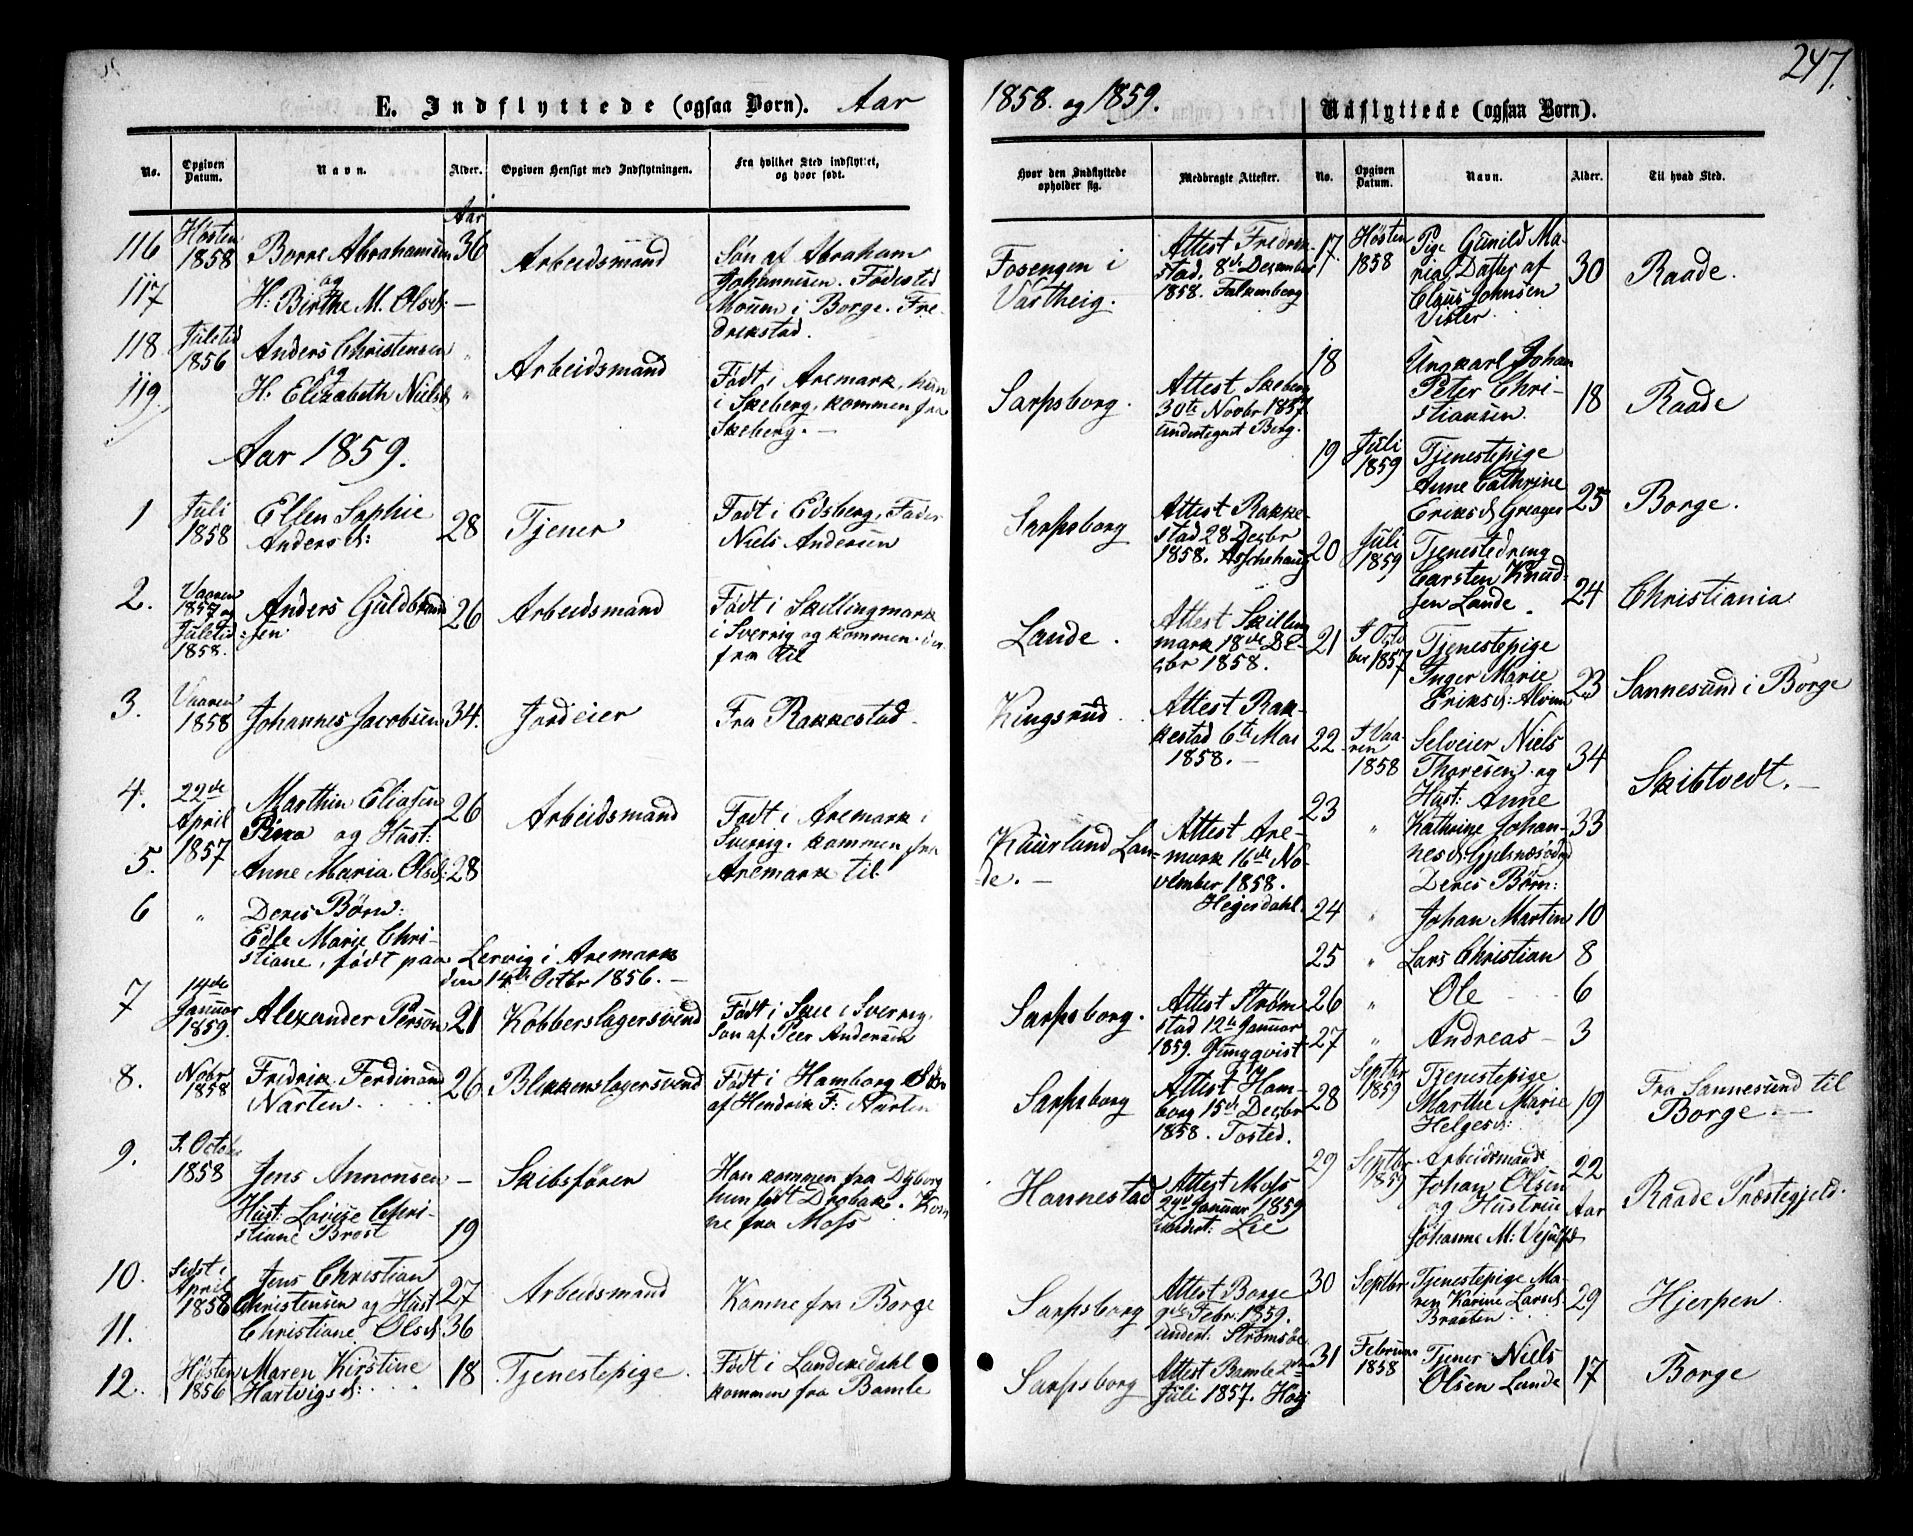 247.
E. Indflyttede (ogsaa Børn). Aar 1858. og 1859.
Udflyttede (ogsaa Børn).
No.
Opgiven Datum.
Navn.
Alder.
Opgiven Hensigt med Indflytningen.
Fra hvilket Sted indflyttet,
og hvor født.
Hvor den Indflyttede
opholder sig.
Medbragte Attester.
No.
Opgiven Datum.
Navn.
Alder.
Til hvad Sted.
Aar
116 Høsten 1858 Borre Abrahamsen 36 Arbeidsmand
og
117 H: Birthe M. Olsd: —
Søn af Abraham
Johannesen. Fødested
Mouem i Borge. Fre-
drikstad.
Fosengen i
Varteig.
Attest Fredrik-
stad. 8de December
1858. Falkenberg
118 Juletid 1856 Anders Christensen " Arbeidsmand
og
119. H. Elizabeth Nielsd "
Født i Aremark, hun
i Skeberg, kommen fra
Skeberg. —
Sarpsborg.
Attest Skeberg
30te Novbr 1857
undertegnet Berg.
Aar 1859.
1 Juli 1858 Ellen Sophie
Andersd: 28 Tjener
Født i Edsberg, Fader
Niels Andersen
Sarpsborg
Attest Rakke-
stad 28 Decbr
1858. Aschehaug
2. Vaaren 1857 og Juletid 1858. Anders Guldbrand-
sen 26 Arbeidsmand
Født i Skillingmark
i Sverrig og kommen der-
fra til
Lande.
Attest Skilling
mark 18de De-
cbr 1858.
3. Vaaren 1858 Johannes Jacobsen 34. Jordeier
Fra Rakkestad
Kingsrud
Attest Rak-
kestad 6te Mai
1858. —
4. 22de April 1857 Marthin Eliasen 26 Arbeidsmand
og Hust:
5. Anne Maria Olsd: 28
Født i Aremark i
Sverrig. kommen fra
Aremark til
Kuurland Lan-
de. —
Attest Are-
mark 16de No-
vember 1858.
Hegerdahl.
6 " Deres Børn:
Edle Marie Chri-
stiane, født paa Lervig i Aremark
den 14de Octbr 1856. —
7 14de Januar 1859. Alexander Person 21 Kobberslagersvend
Født i Skee i Sverrig.
Søn af Peer Andersen
Sarpsborg.
Attest Strøm-
stad 12te Januar
1859. Jungqvist
8. Nobr 1858 Fredrik Ferdinand
Narten. 26 Blikkenslagersvend
Født i Hamborg Søn
af Hendrik F: Narten
Sarpsborg
Attest Ham-
borg 15de Decbr
1858. Tosted.
9. October 1858 Jens Annonsen —
Hust: Louise Chri-
stiane Brost 19
Skibsfører
Han kommen fra
hun født Drøbak. Kom
ne fra Moss
Hannestad
Attest Moss
Januar 1859
Lie
10. Sidst i April 1858 Jens Christian
Christensen og Hust 27 Arbeidsmand
11. Christiane Olsd 36
Komne fra Borge
Sarpsborg
Attest Borge
Febr. 1859.
undert. Strømsøe
12. Høsten 1856 Maren Kirstine
Hartvigsd: 18 Tjenestepige.
Født i Landekedahl
kommen fra Bamle
Sarpsborg
Attest Bamle 2den
Juli 1857.
17. Høsten 1858 Pige Gunild Ma-
ria, Datter af
Claus Johnsen
Visler 30 Raade.
18 Ungkarl Johan
Peter Chri-
stiansen. 18 Raade
19 Juli 1859 Tjenestepige
Anne Cathrine
Eriksd Greager 25 Borge.
20 Juli 1859 Tjenestedreng
Carsten Knud-
sen Lande. 24 Christiania
21 October 1857 Tjenestepige
Inger Marie
Eriksd: Alvim 23 Sannesund i Borge
22 Vaaren 1858 Selveier Niels
Thoresen og 34 Skibtvedt. —
23 " Hust: Anne
Kathrine Johan-
nesd: 33
Deres Børn:
24 " Johan Martin 10
25 " Lars Christian 8
26 " Ole 6
27 " Andreas 3
28 Septbr 1859 Tjenestepige
Marthe Marie
Helgesd: 19 Fra Sannesund til
Borge. —
29 Septbr 1859 Arbeidsmand
Johan Olsen
og Hustrue
Johanne M: 22 Aar Raade Præstegjeld.
30 Septbr Tjenestepige Ma-
ren Karine Larsd
Braaten 29 Hjerpen
31 Februar 1858 Tjener Niels
Olsen Lande 17 Borge